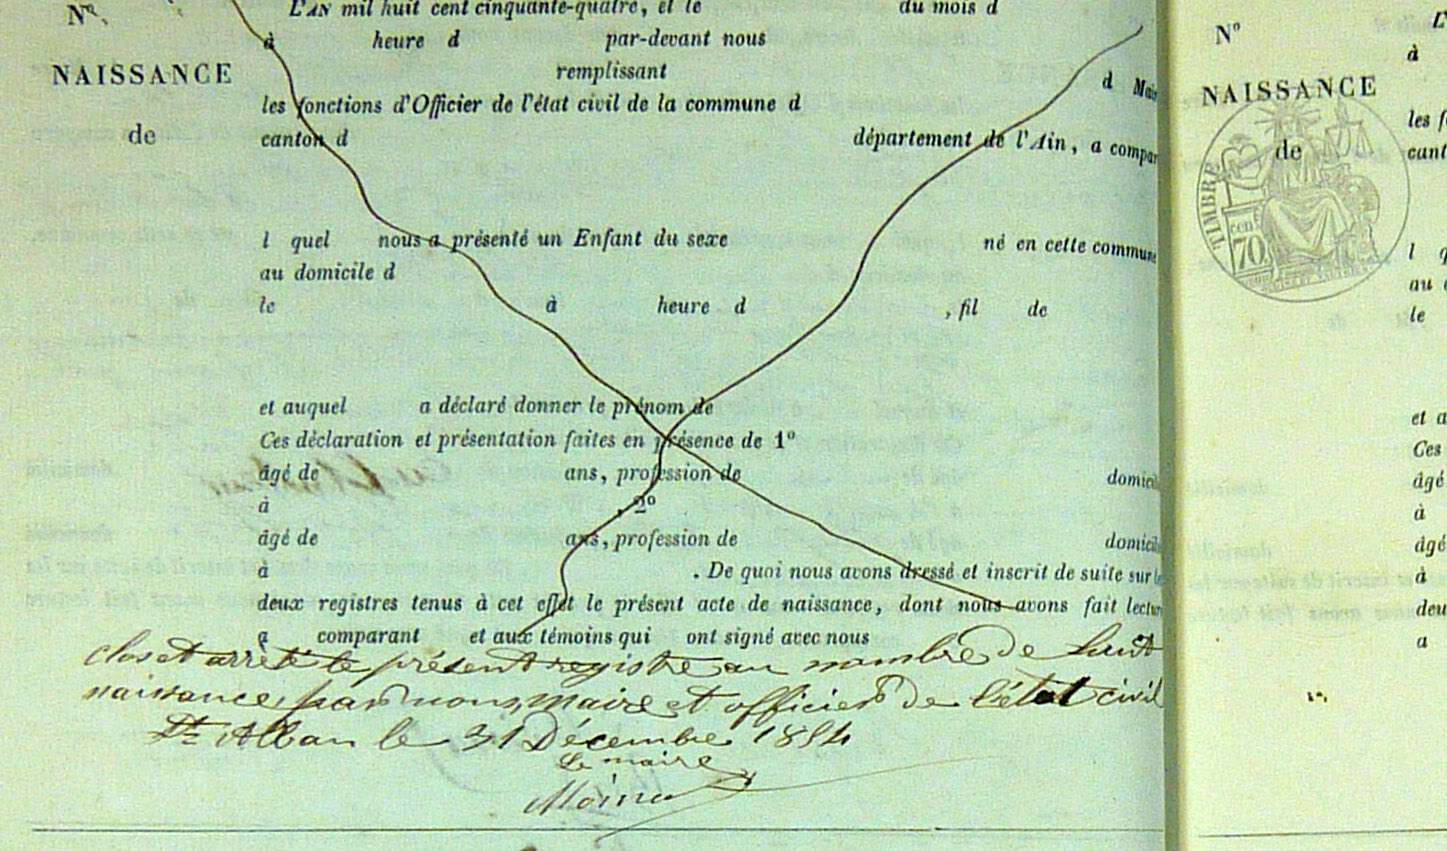 Nº.
L'AN mil huit cent cinquante-quatre, et le du mois d
à heure d par-devant nous
NAISSANCE
remplissant d Mai
les fonctions d'Officier de l'état civil de la commune d
de
canton d département de l'Ain, a compar
l quel nous a présenté un Enfant du sexe né en cette commune
au domicile d
le à heure d , fil de
et auquel a déclaré donner le prénom de
Ces déclaration et présentation faites en présence de 1º
âgé de ans, profession de domicil
à , 2º
âgé de ans, profession de domicil
à . De quoi nous avons dressé et inscrit de suite sur le
deux registres tenus à cet effet le présent acte de naissance, dont nous avons fait lectur
a comparant et aux témoins qui ont signé avec nous
clos et arrêté le présent registre au nombre de huit
naissances par nous, maire et officier de l'état civil
St Alban le 31 Décembre 1854
Le maire
Nº
L'
à
NAISSANCE
les f
de
cant
TIMBRE
70
l q
au d
le
et a
Ces
âgé
à
âgé
à
deu
a